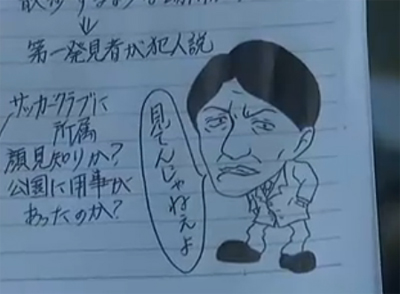 第一発見者が犯人説
サッカークラブに
所属
顔見知りか?
公園に用事が
あったのか?
見てんじゃねぇよ